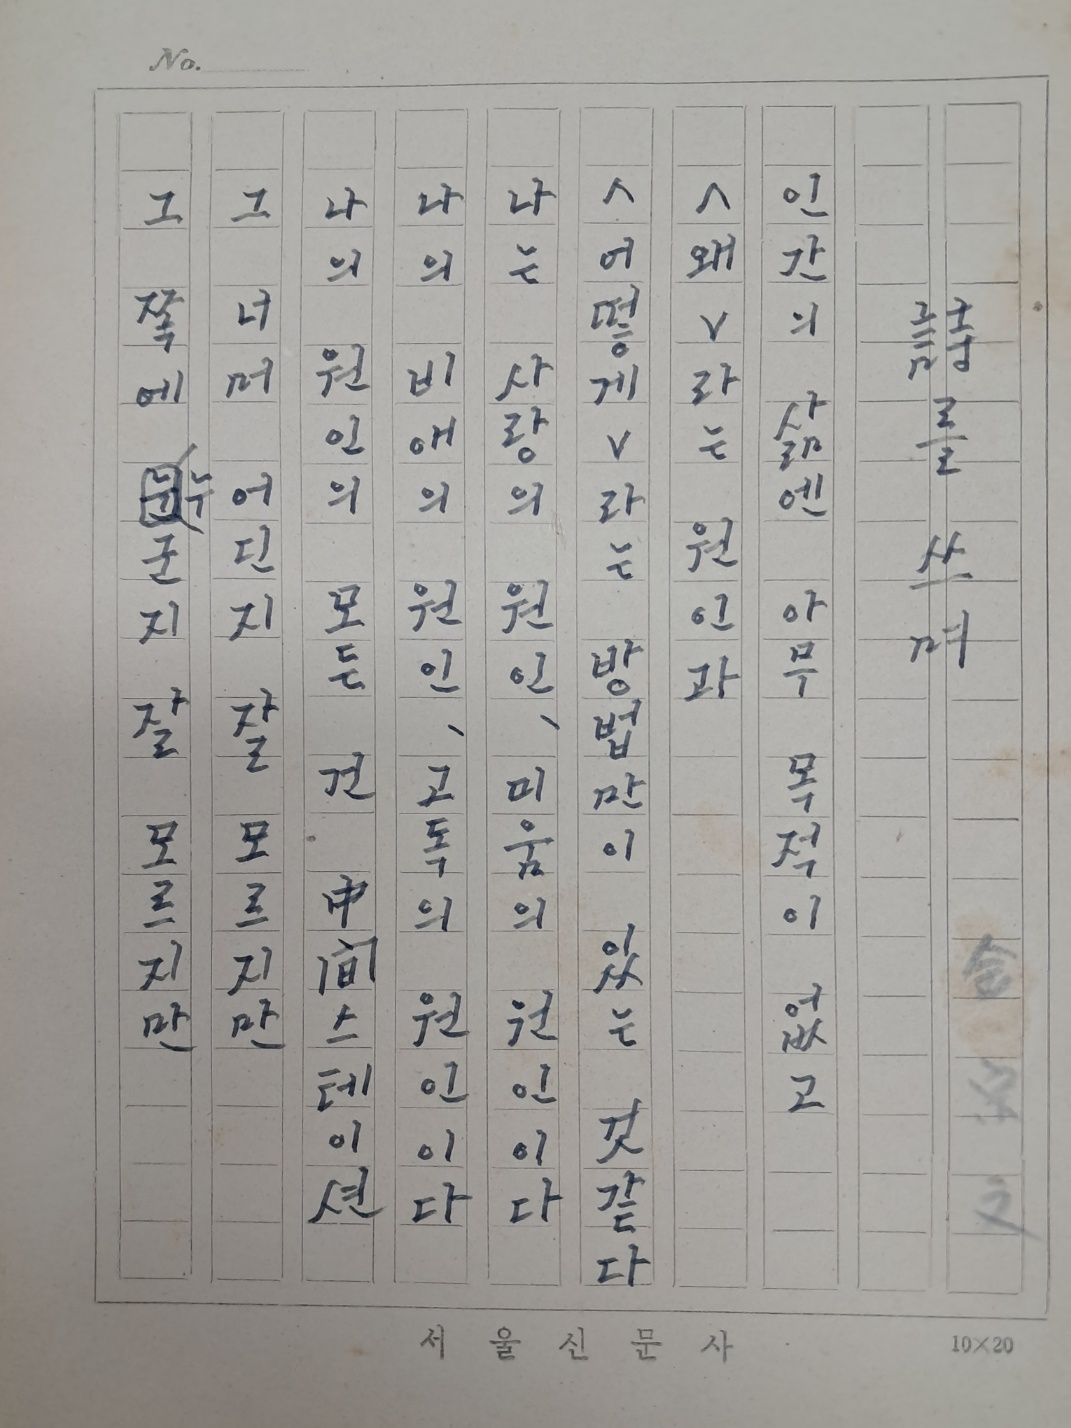 詩를 쓰며
인간의 삶엔 아무 목적이 없고
＜왜＞라는 원인과
＜어떻게＞라는 방법만이 있는 것 같다
나는 사랑의 원인、미움의 원인이다
나의 비애의 원인、고독의 원인이다
나의 원인의 모든 건 中間스테이션
그 너머 어딘지 잘 모르지만
그 쪽에 누군지 잘 모르지만
No.
서울신문사
10×20